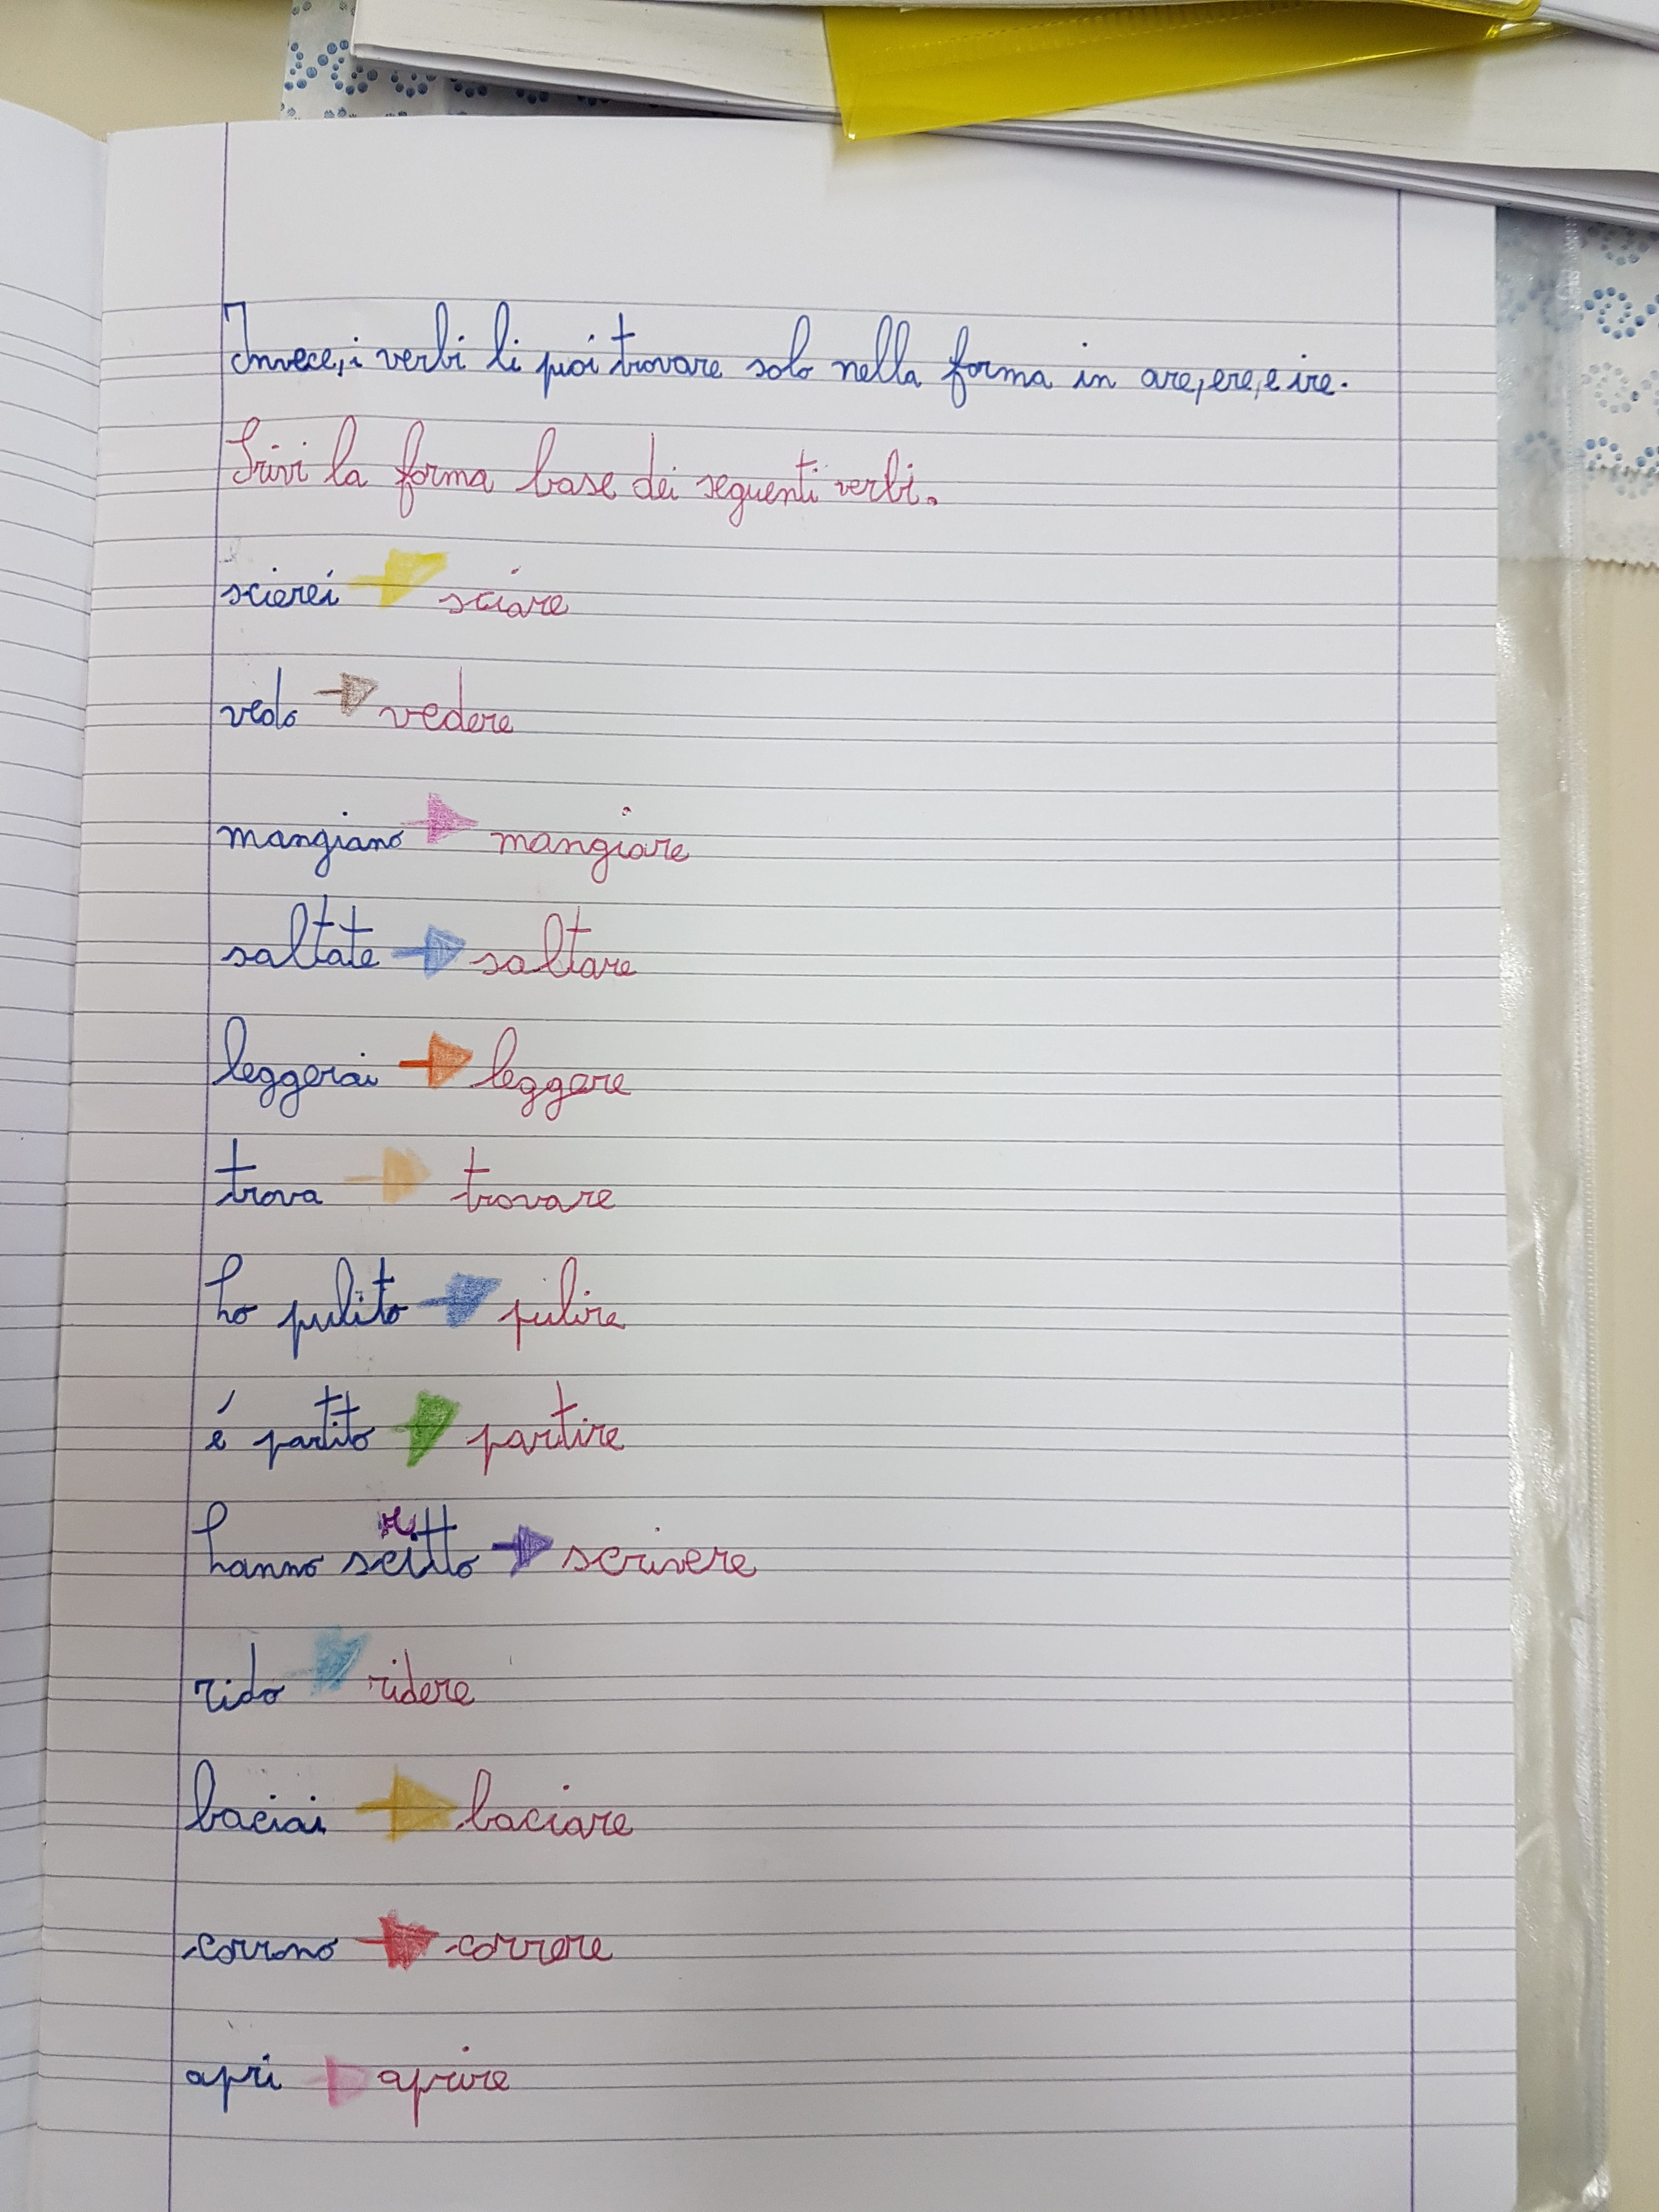 Invece, i verbi li puoi trovare solo nella forma in are, ere, e ire.
Srivi la forma base dei seguenti verbi.
scierei → sciare
vedo → vedere
mangiano → mangiare
saltate → saltare
leggerai → leggere
trova → trovare
ho pulito → pulire
é partito → partire
hanno scritto → scrivere
rido → ridere
baciai → baciare
corrono → correre
apri → aprire